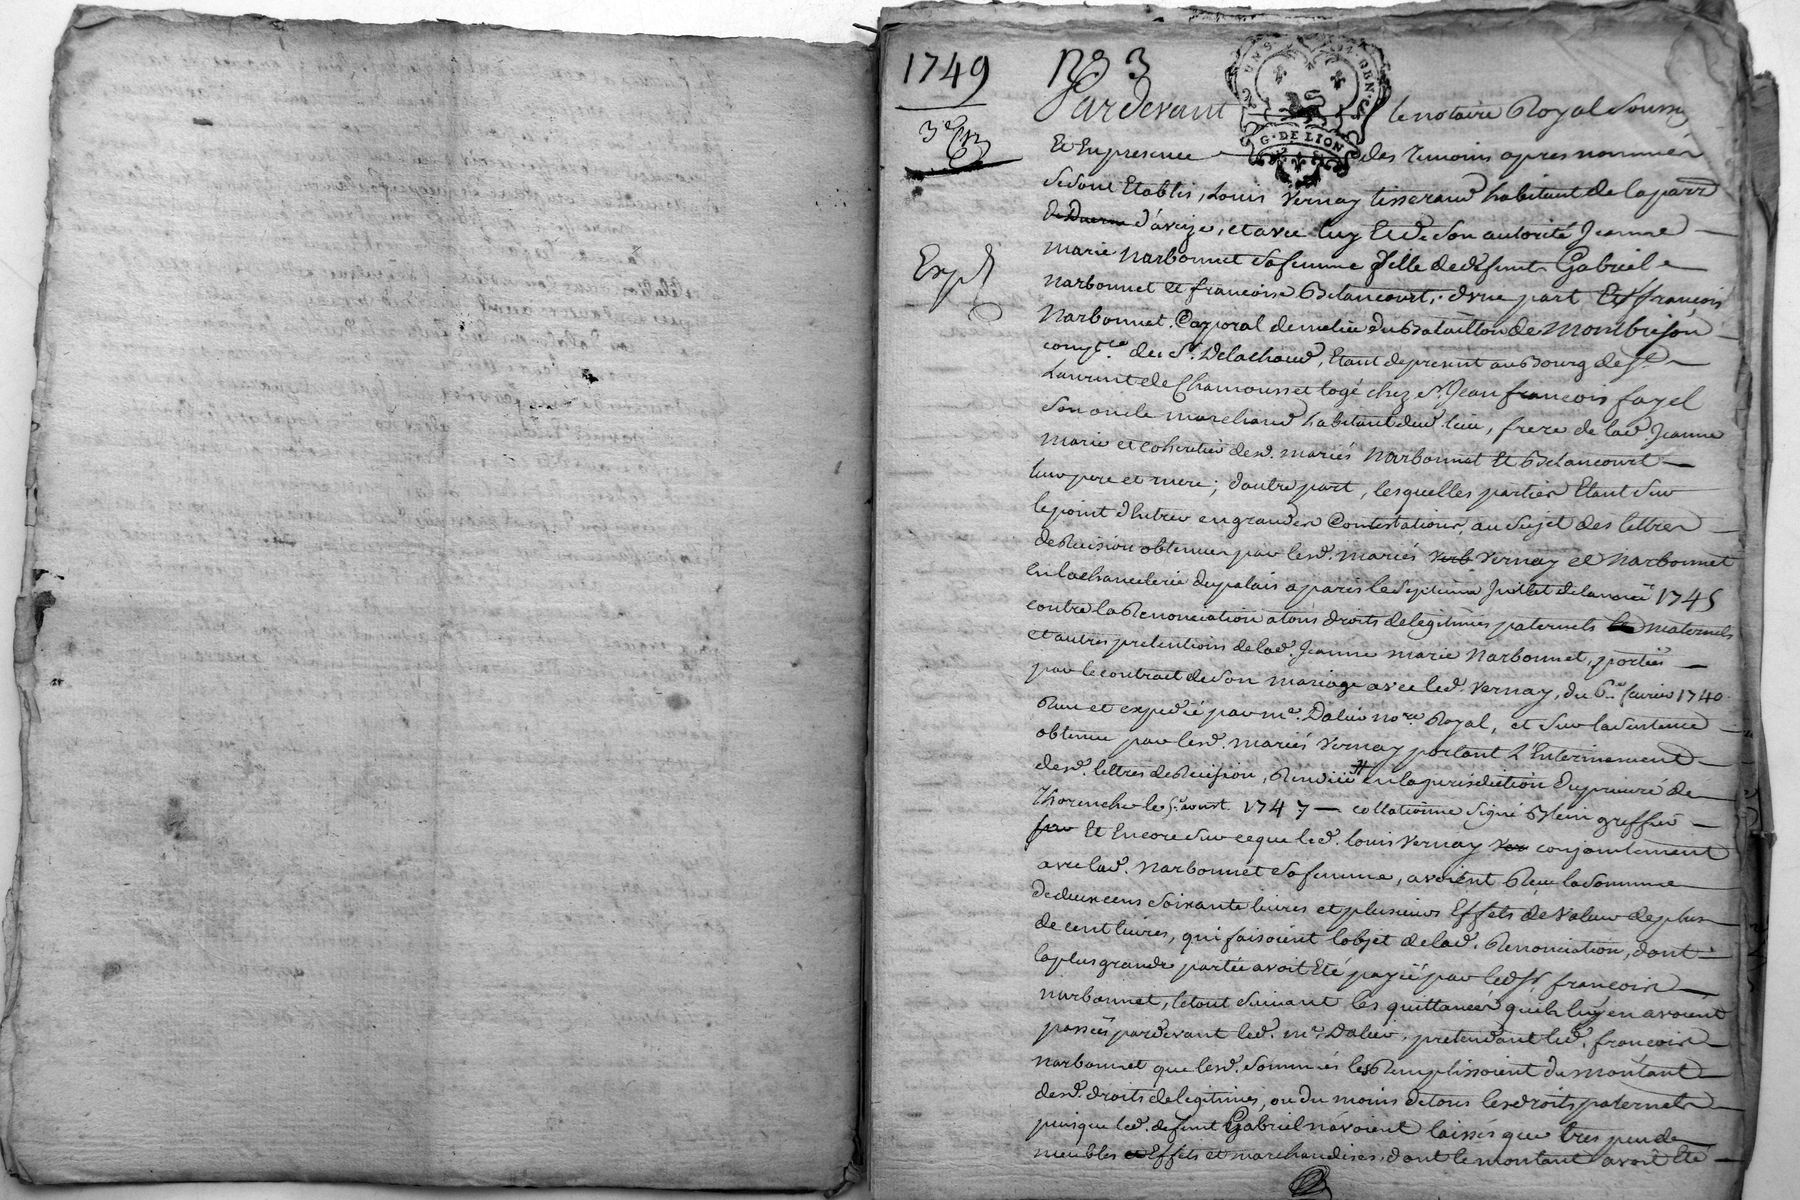 1749
n° 3
Pardevant le notaire Royal soussig
Et En presence des temoins apres nommés
se sont Etablis, Louis Vernay tisserand habitant de la parr
d'aveize, et avec luy Et de son autorité Jeanne
marie Narbonnet sa femme fille de deffunt Gabriel
Narbonnet Et francoise Belancourt, d'une part Et françois
Narbonnet Caporal de melice du Bataillon de Montbrison
comp.e du Sr. Delachaud, Etant de present au Bourg de St.
Laurent de Chamousset logé chez Sr. Jean francois fayel
son oncle marchand habitant dud. lieu, frere de lad. Jeanne
Marie et coheritier desd. mariés Narbonnet Et Belancourt
leur pere et mere; d'autre part, lesquelles parties Etant sur
le point d'Entrer en grandes Contestations, au sujet des lettres
de Recision obtenues par lesd. mariés Verb Vernay et Narbonnet
En la chancelerie du palais a paris le septieme Juillet de lannée 1745
contre la Renonciation a tous droits de legitimes paternels maternels
et autres pretentions de lad. Jeanne Marie Narbonnet, portée
par le contrat de son Mariage avec led. Vernay, du 6.e fevrier 1740
Reçu et expedié par me. Dalier no.re Royal, et sur la sentence
obtenue par lesd. mariés Vernay portant L'Enterinement
desd. lettres de Recision, Rendüe # en la jurisdiction du prieuré de
Thorenche le 5. aoust 1747 — collationné signé Blein greffier
Et Encore sur ce que led. Louis Vernay Ver conjointement
avec lad. Narbonnet sa femme, avoient Reçu la somme
de deux cens soixante livres et plusieurs Effets de valeur de plus
de cent livres, qui faisoient l'objet de lad. Renonciation, dont
la plus grande partie avoit Eté payée par led. Sr. francois
Narbonnet, le tout suivant les quittances qu'ils luy en avoient
passées pardevant led. me. Dalier, pretendant led. francois
Narbonnet que lesd. sommes les Remplissoient du montant
desd. droits de legitimes, ou du moins de tous lesd. droits paternels
puisque led. defunt Gabriel n'avoient laissés que tres peu de
meubles Effets et marchandises, dont le montant avoit Eté
Exp.d
G. DE LION